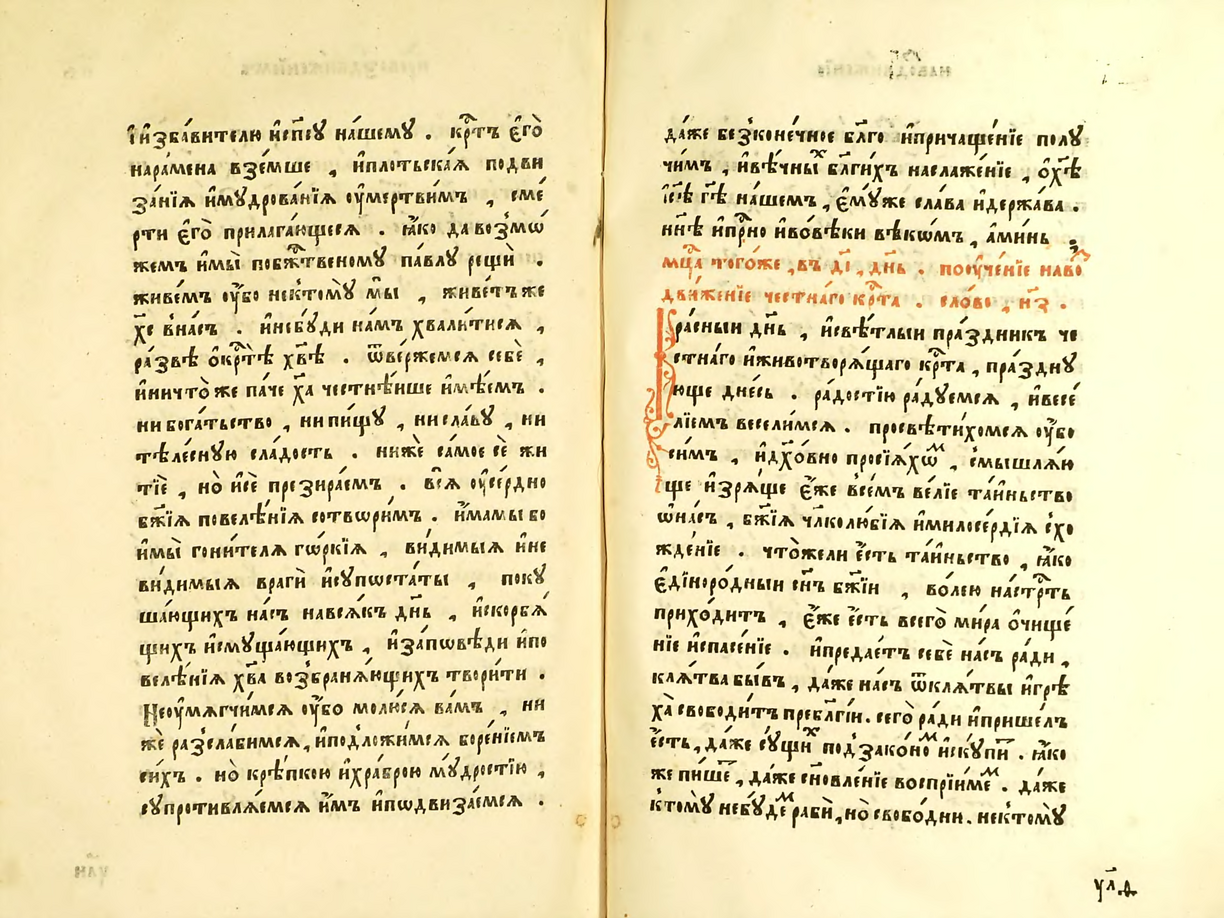 і҆ и҆збавителю и҆сп҃су нашему . крⷭ҇тъ є҆го̀
нарамена вземше , и҆плотьскаѧ подви
занїѧ и҆мудрованїѧ ᲂу҆мертвимъ , сме
рти є҆го̀ прилагающесѧ . ꙗ҆ко да возмѡ
жемъ и҆мы̀ побжⷭ҇твеному павлу рещѝ .
живемъ ᲂу҆бо нектомꙋ мы̀ , живетъже
хс҃ внасъ . и҆небꙋди намъ хвалитисѧ ,
развѣ ѡ҆крⷭ҇тѣ хв҃ѣ . ѿвержемсѧ себѐ ,
и҆ничтоже паче ха҃ честнѣише и҆мѣемъ .
ни богатьство , ни пищꙋ , ни славꙋ , ни
тѣлеснꙋю сладость . ниже самое сѐ жи
тїе , но и҆сѐ презираемъ . всѧ ᲂу҆сердно
бж҃їѧ повелѣнїѧ сотворимъ . и҆мамы бо
и҆мы̀ гонителѧ гѡркїѧ , видимыѧ и҆не
видимыѧ врагѝ и҆сꙋпѡстаты , покꙋ
шающихъ насъ навсѧкъ дн҃ь , и҆скорбѧ
щихъ и҆смꙋщающихъ , и҆заповѣди и҆по
велѣнїѧ хв҃а возбранѧющихъ творити .
Неᲂу҆мѧгчимсѧ ᲂу҆бо молюсѧ вамъ , ни
же разслабимсѧ, и҆подложимсѧ боренїемъ
сихъ . но крѣпкою и҆храброю мꙋдростїю ,
сꙋпротивлѧемсѧ и҆мъ и҆пѡдвизаемсѧ .
даже безконечное бл҃го и҆причащенїе полꙋ
чимъ , и҆вѣчныⷯ бл҃гихъ наслаженїе , ѡ҆хс҃ѣ
і҆с҃ѣ гд҃ѣ нашемъ , є҆мꙋже слава и҆держава .
нн҃ѣ и҆прⷭ҇но и҆вовѣки вѣкѡмъ , а҆минь .
мцⷭ҇а тогоже , въ д҃і , дн҃ь . поᲂу҆ченїе наво
движенїе честнаго крⷭ҇та . слово , н҃з .
Красныи дн҃ь , и҆свѣтлыи праздникъ че
стнаго и҆животворѧщаго крⷭ҇та , празднꙋ
юще днесь . радостїю радꙋемсѧ , и҆весе
лїемъ веселимсѧ . просвѣтихомсѧ ᲂу҆бо
симъ , и҆дх҃овно просїѧхѡⷨ , смышлѧю
ще и҆зрѧще є҆же всемъ велїе таиньство
ѡ҆насъ , бж҃їѧ чл҃колюбїѧ и҆милосердїѧ схо
жденїе . чтожели є҆сть таиньство , ꙗ҆ко
є҆дінородныи сн҃ъ бж҃їи , волею настрⷭ҇ть
приходитъ , є҆же є҆сть всего̀ мира ѻ҆чище
нїе и҆спасенїе . и҆предаетъ себѐ насъ ради ,
клѧтва бывъ , даже насъ ѿклѧтвы и҆грѣ
ха̀ свободитъ пребл҃гіи. сего̀ ради и҆пришелъ
є҆сть, даже сꙋщиⷯ подзаконоⷨ и҆скꙋпи́тъ . ꙗ҆ко
же пишеⷮ , даже сн҃овленїе воспрїимеⷨ . даже
ктомꙋ небꙋдеⷨ рабѝ, но свободни. нектомꙋ